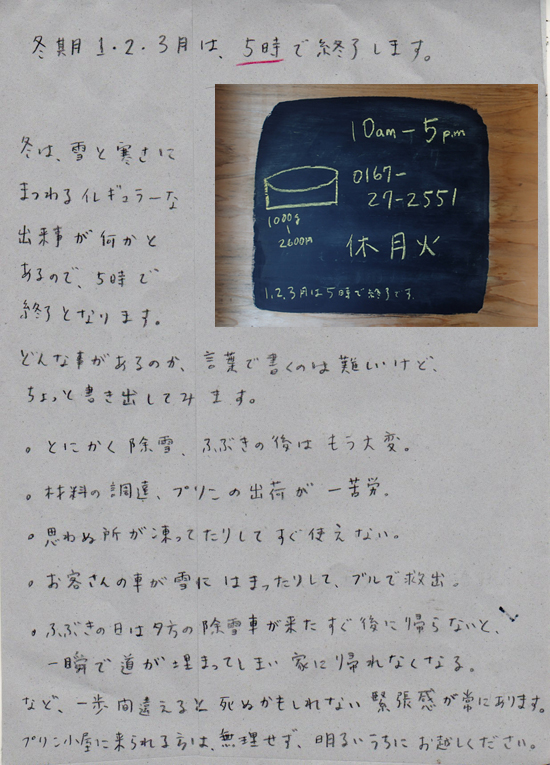 冬期1・2・3月は、5時で終了します。
10am-5p.m
0167-
27-2551
1000g
2600円
休月火
1.2.3月は5時で終了です.
冬は、雪と寒さに
まつわるイレギュラーな
出来事が何かと
あるので、5時で
終了となります。
どんな事があるのか、言葉で書くのは難しいけど、
ちょっと書き出してみます。
。とにかく除雪、ふぶきの後はもう大変。
。材料の調達、プリンの出荷が一苦労。
。思わぬ所が凍ってたりしてすぐ使えない。
。お客さんの車が雪にはまったりして、ブルで救出。
。ふぶきの日は夕方の除雪車が来たすぐ後に帰らないと、
一瞬で道が埋まってしまい家に帰れなくなる。
など、一歩間違えると死ぬかもしれない緊張感が常にあります。
プリン小屋に来られる方は、無理せず、明るいうちにお越しください。